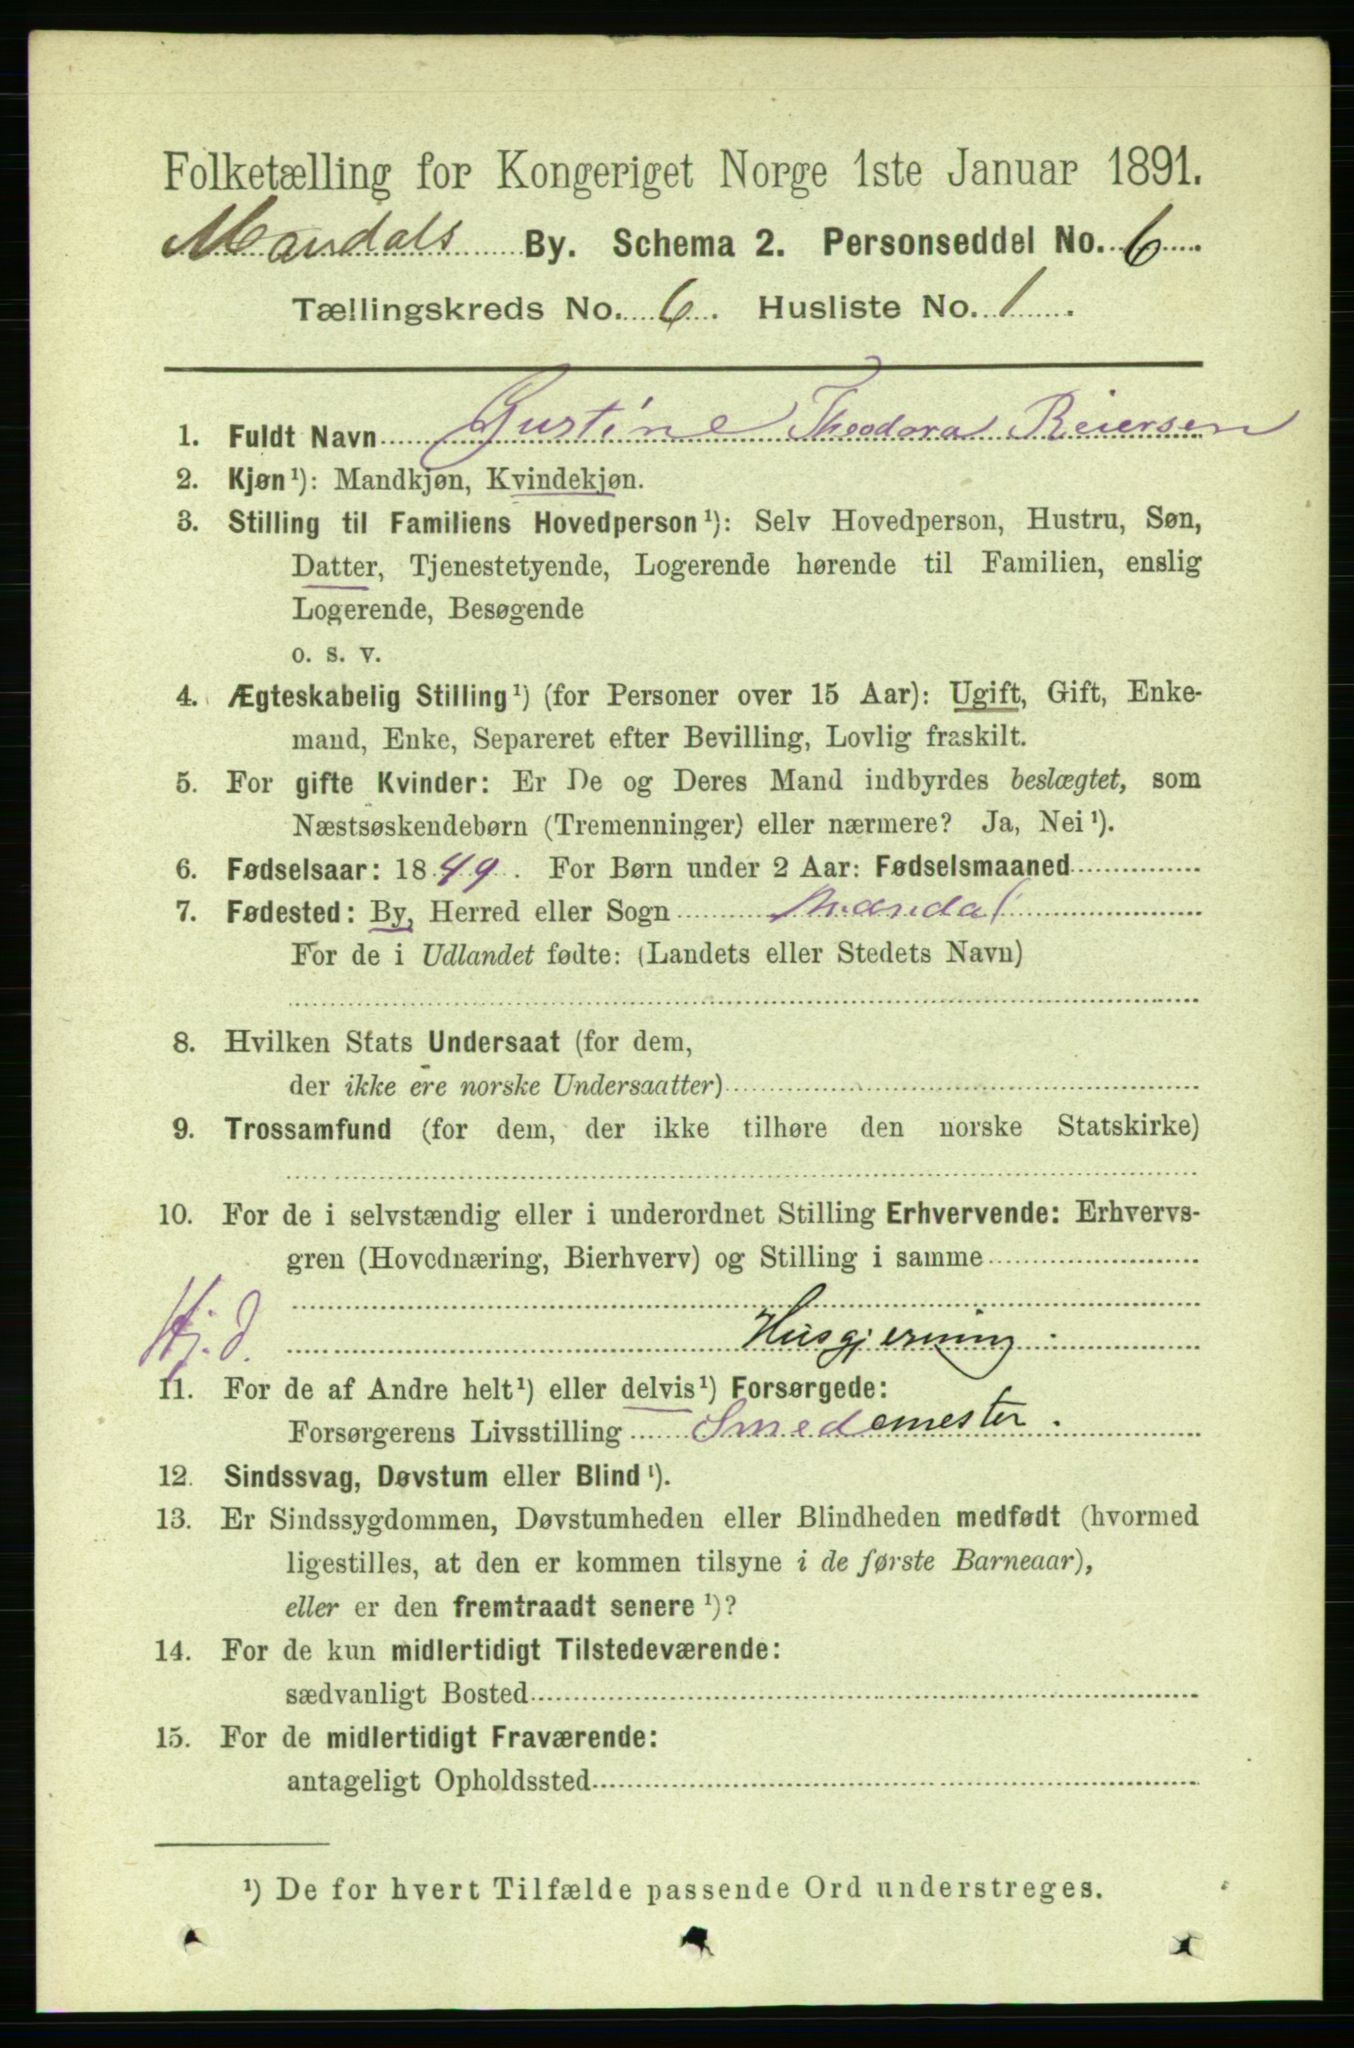 Folketælling for Kongeriget Norge 1ste Januar 1891.
Mandals By. Schema 2. Personseddel No. 6
Tællingskreds No. 6. Husliste No. 1.
1. Fuldt Navn Gustine Theodora Reiersen
2. Kjøn¹): Mandkjøn, Kvindekjøn.
3. Stilling til Familiens Hovedperson¹): Selv Hovedperson, Hustru, Søn,
Datter, Tjenestetyende, Logerende hørende til Familien, enslig
Logerende, Besøgende
o. s. v.
4. Ægteskabelig Stilling¹) (for Personer over 15 Aar): Ugift, Gift, Enke-
mand, Enke, Separeret efter Bevilling, Lovlig fraskilt.
5. For gifte Kvinder: Er De og Deres Mand indbyrdes beslægtet, som
Næstsøskendebørn (Tremenninger) eller nærmere? Ja, Nei¹).
6. Fødselsaar: 1849. For Børn under 2 Aar: Fødselsmaaned
7. Fødested: By, Herred eller Sogn Mandal
For de i Udlandet fødte: (Landets eller Stedets Navn)
8. Hvilken Stats Undersaat (for dem,
der ikke ere norske Undersaatter)
9. Trossamfund (for dem, der ikke tilhøre den norske Statskirke)
10. For de i selvstændig eller i underordnet Stilling Erhvervende: Erhvervs-
gren (Hovednæring, Bierhverv) og Stilling i samme
Hj. d. Husgjerning.
11. For de af Andre helt¹) eller delvis¹) Forsørgede:
Forsørgerens Livsstilling Smedemester.
12. Sindssvag, Døvstum eller Blind¹).
13. Er Sindssygdommen, Døvstumheden eller Blindheden medfødt (hvormed
ligestilles, at den er kommen tilsyne i de første Barneaar),
eller er den fremtraadt senere¹)?
14. For de kun midlertidigt Tilstedeværende:
sædvanligt Bosted
15. For de midlertidigt Fraværende:
antageligt Opholdssted
¹) De for hvert Tilfælde passende Ord understreges.